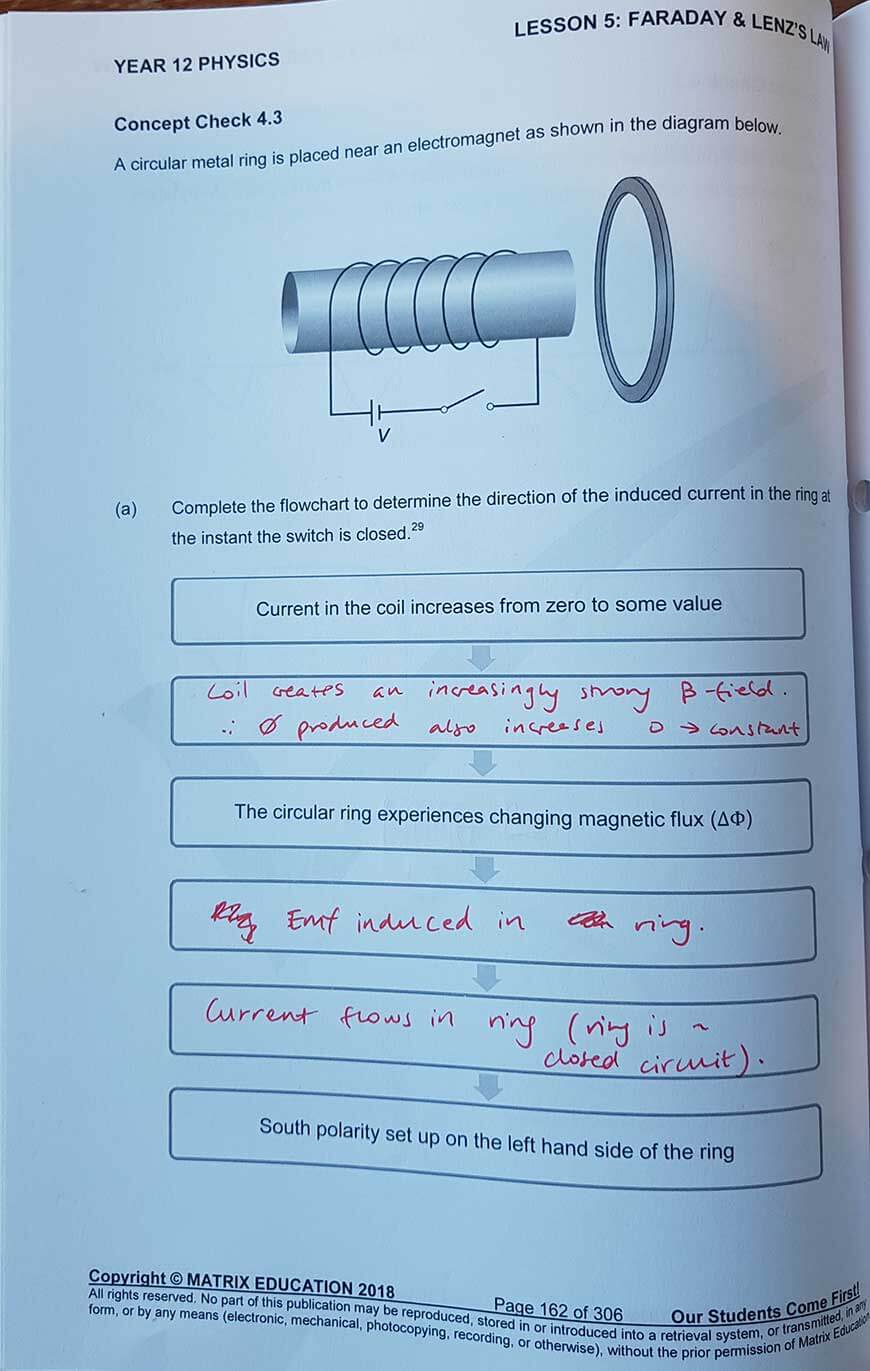 LESSON 5: FARADAY & LENZ'S LAW
YEAR 12 PHYSICS
Concept Check 4.3
A circular metal ring is placed near an electromagnet as shown in the diagram below.
V
(a) Complete the flowchart to determine the direction of the induced current in the ring at
the instant the switch is closed.29
Current in the coil increases from zero to some value
Coil creates an increasingly strong B-field.
∴ Ø produced also increases 0 → constant
The circular ring experiences changing magnetic flux (ΔΦ)
Emf induced in ring.
Current flows in ring (ring is a
closed circuit).
South polarity set up on the left hand side of the ring
Copyright © MATRIX EDUCATION 2018
Page 162 of 306
Our Students Come First!
All rights reserved. No part of this publication may be reproduced, stored in or introduced into a retrieval system, or transmitted, in any
form, or by any means (electronic, mechanical, photocopying, recording, or otherwise), without the prior permission of Matrix Education